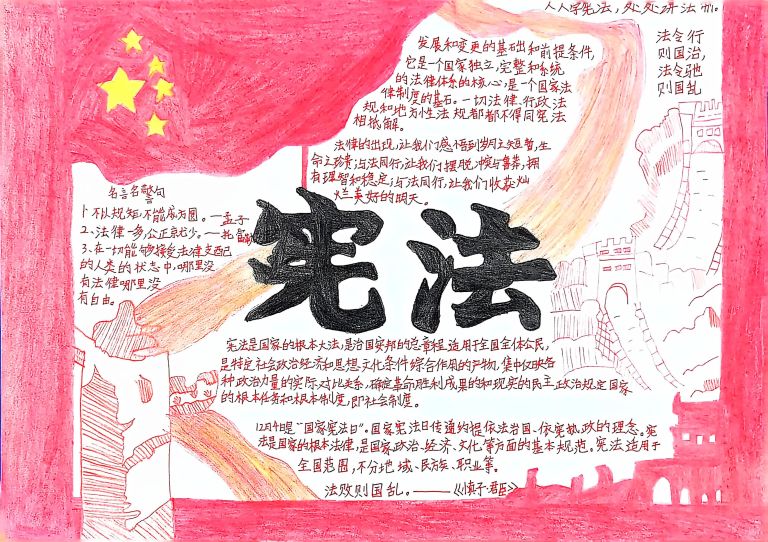 人人学宪法，处处讲法
法令行
则国治，
法令弛
则国乱
发展和变更的基础和前提条件，
它是一个国家独立，完整和系统
的法律体系的核心，是一个国家法
律制度的基石。一切法律、行政法
规和地方性法规都都不得同宪法
相抵触。
法律的出现，让我们感悟到岁月之短暂，生
命之珍贵；与法同行，让我们摆脱冲撞与鲁莽，拥
有理智和稳定；与法同行，让我们收获灿
烂美好的明天。
名言名警句
1、不以规矩，不能成方圆。—孟子
2、法律一多，公正就少。—托·富勒
3、在一切能够接受法律支配
的人类的状态中，哪里没
有法律哪里没
有自由。
宪法
宪法是国家的根本大法，是治国安邦的总章程，适用于全国全体公民，
是特定社会政治经济和思想文化条件综合作用的产物，集中反映各
种政治力量的实际对比关系，确定革命胜利成果的和现实的民主政治规定国家
的根本任务和根本制度，即社会制度。
12月4日是“国家宪法日”。国家宪法日传递约提依法治国、依宪执政的理念。宪
法是国家的根本法律，是国家政治、经济、文化等方面的基本规范。宪法适用于
全国范围，不分地域、民族、职业等。
法败则国乱。——《慎子·君臣》